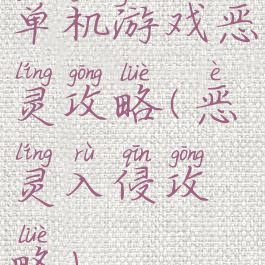 单机游戏恶
líng gōng lüè è
灵攻略(恶
líng rù qīn gōng
灵入侵攻
lüè
略)